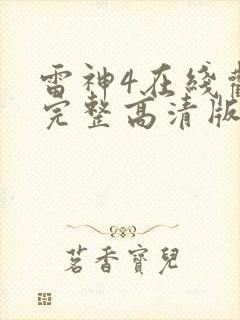 雷神4在綫
完整高清版
茗香寶兒